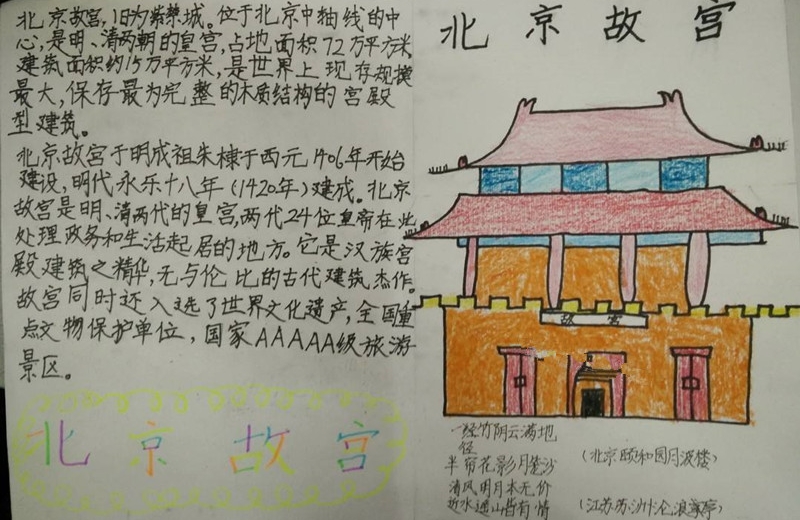 北京故宫，旧为紫禁城。位于北京中轴线的中
心，是明、清两朝的皇宫，占地面积72万平方米，
建筑面积约15万平方米，是世界上现存规模
最大，保存最为完整的木质结构的宫殿
型建筑。
北京故宫于明成祖朱棣于西元1406年开始
建设，明代永乐十八年（1420年）建成。北京
故宫是明、清两代的皇宫，两代24位皇帝在此
处理政务和生活起居的地方。它是汉族宫
殿建筑之精华，无与伦比的古代建筑杰作。
故宫同时还入选了世界文化遗产，全国重
点文物保护单位，国家AAAAA级旅游
景区。
北京故宫
北京故宫
故宫
一经竹阴云满地
径
半帘花影月笼沙（北京颐和园月波楼）
清风明月本无价
近水远山皆有情（江苏苏州沧浪亭）